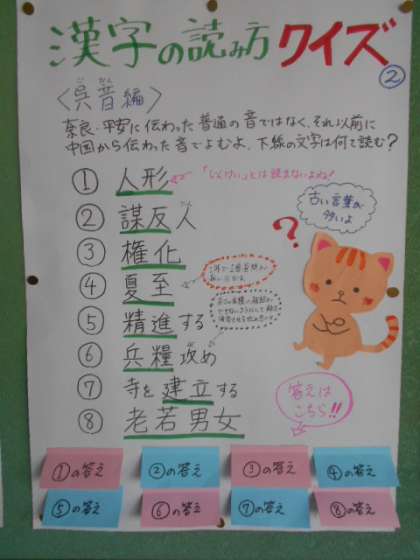 漢字の読み方クイズ
②
〈呉音編〉
ごおん
奈良・平安に伝わった普通の音ではなく、それ以前に
中国から伝わった音でよむよ。下線の文字は何て読む?
① 人形
「じんけい」とは読まないよね!
② 謀反人
③ 権化
④ 夏至
⑤ 精進する
⑥ 兵糧攻め
⑦ 寺を建立する
⑧ 老若男女
古い言葉が
多いよ
?
答えは
こちら!!
①の答え
②の答え
③の答え
④の答え
⑤の答え
⑥の答え
⑦の答え
⑧の答え